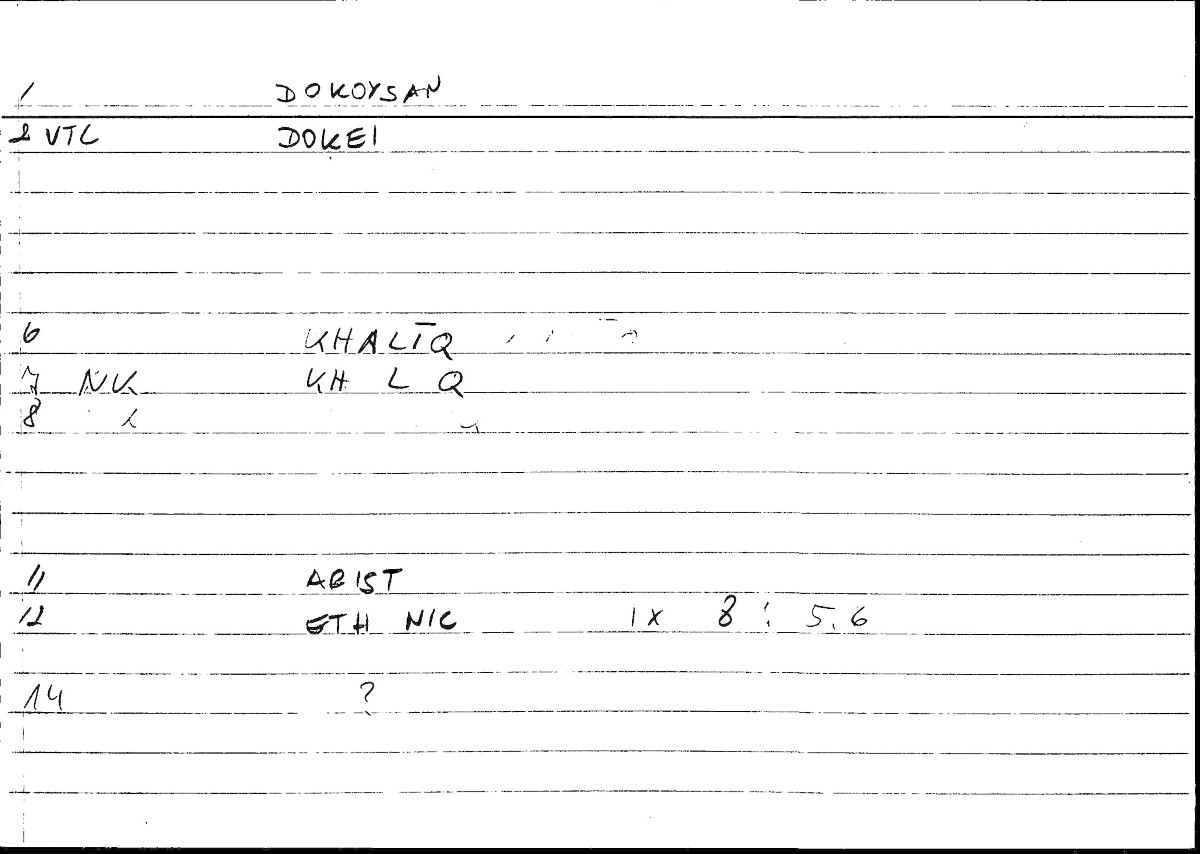 1 DOKOYSAN
2 VTC DOKEI
6 KHALĪQ
7 NK KH L Q
8
11 ABIST
12 ETH NIC 1X 8 : 5.6
14 ?